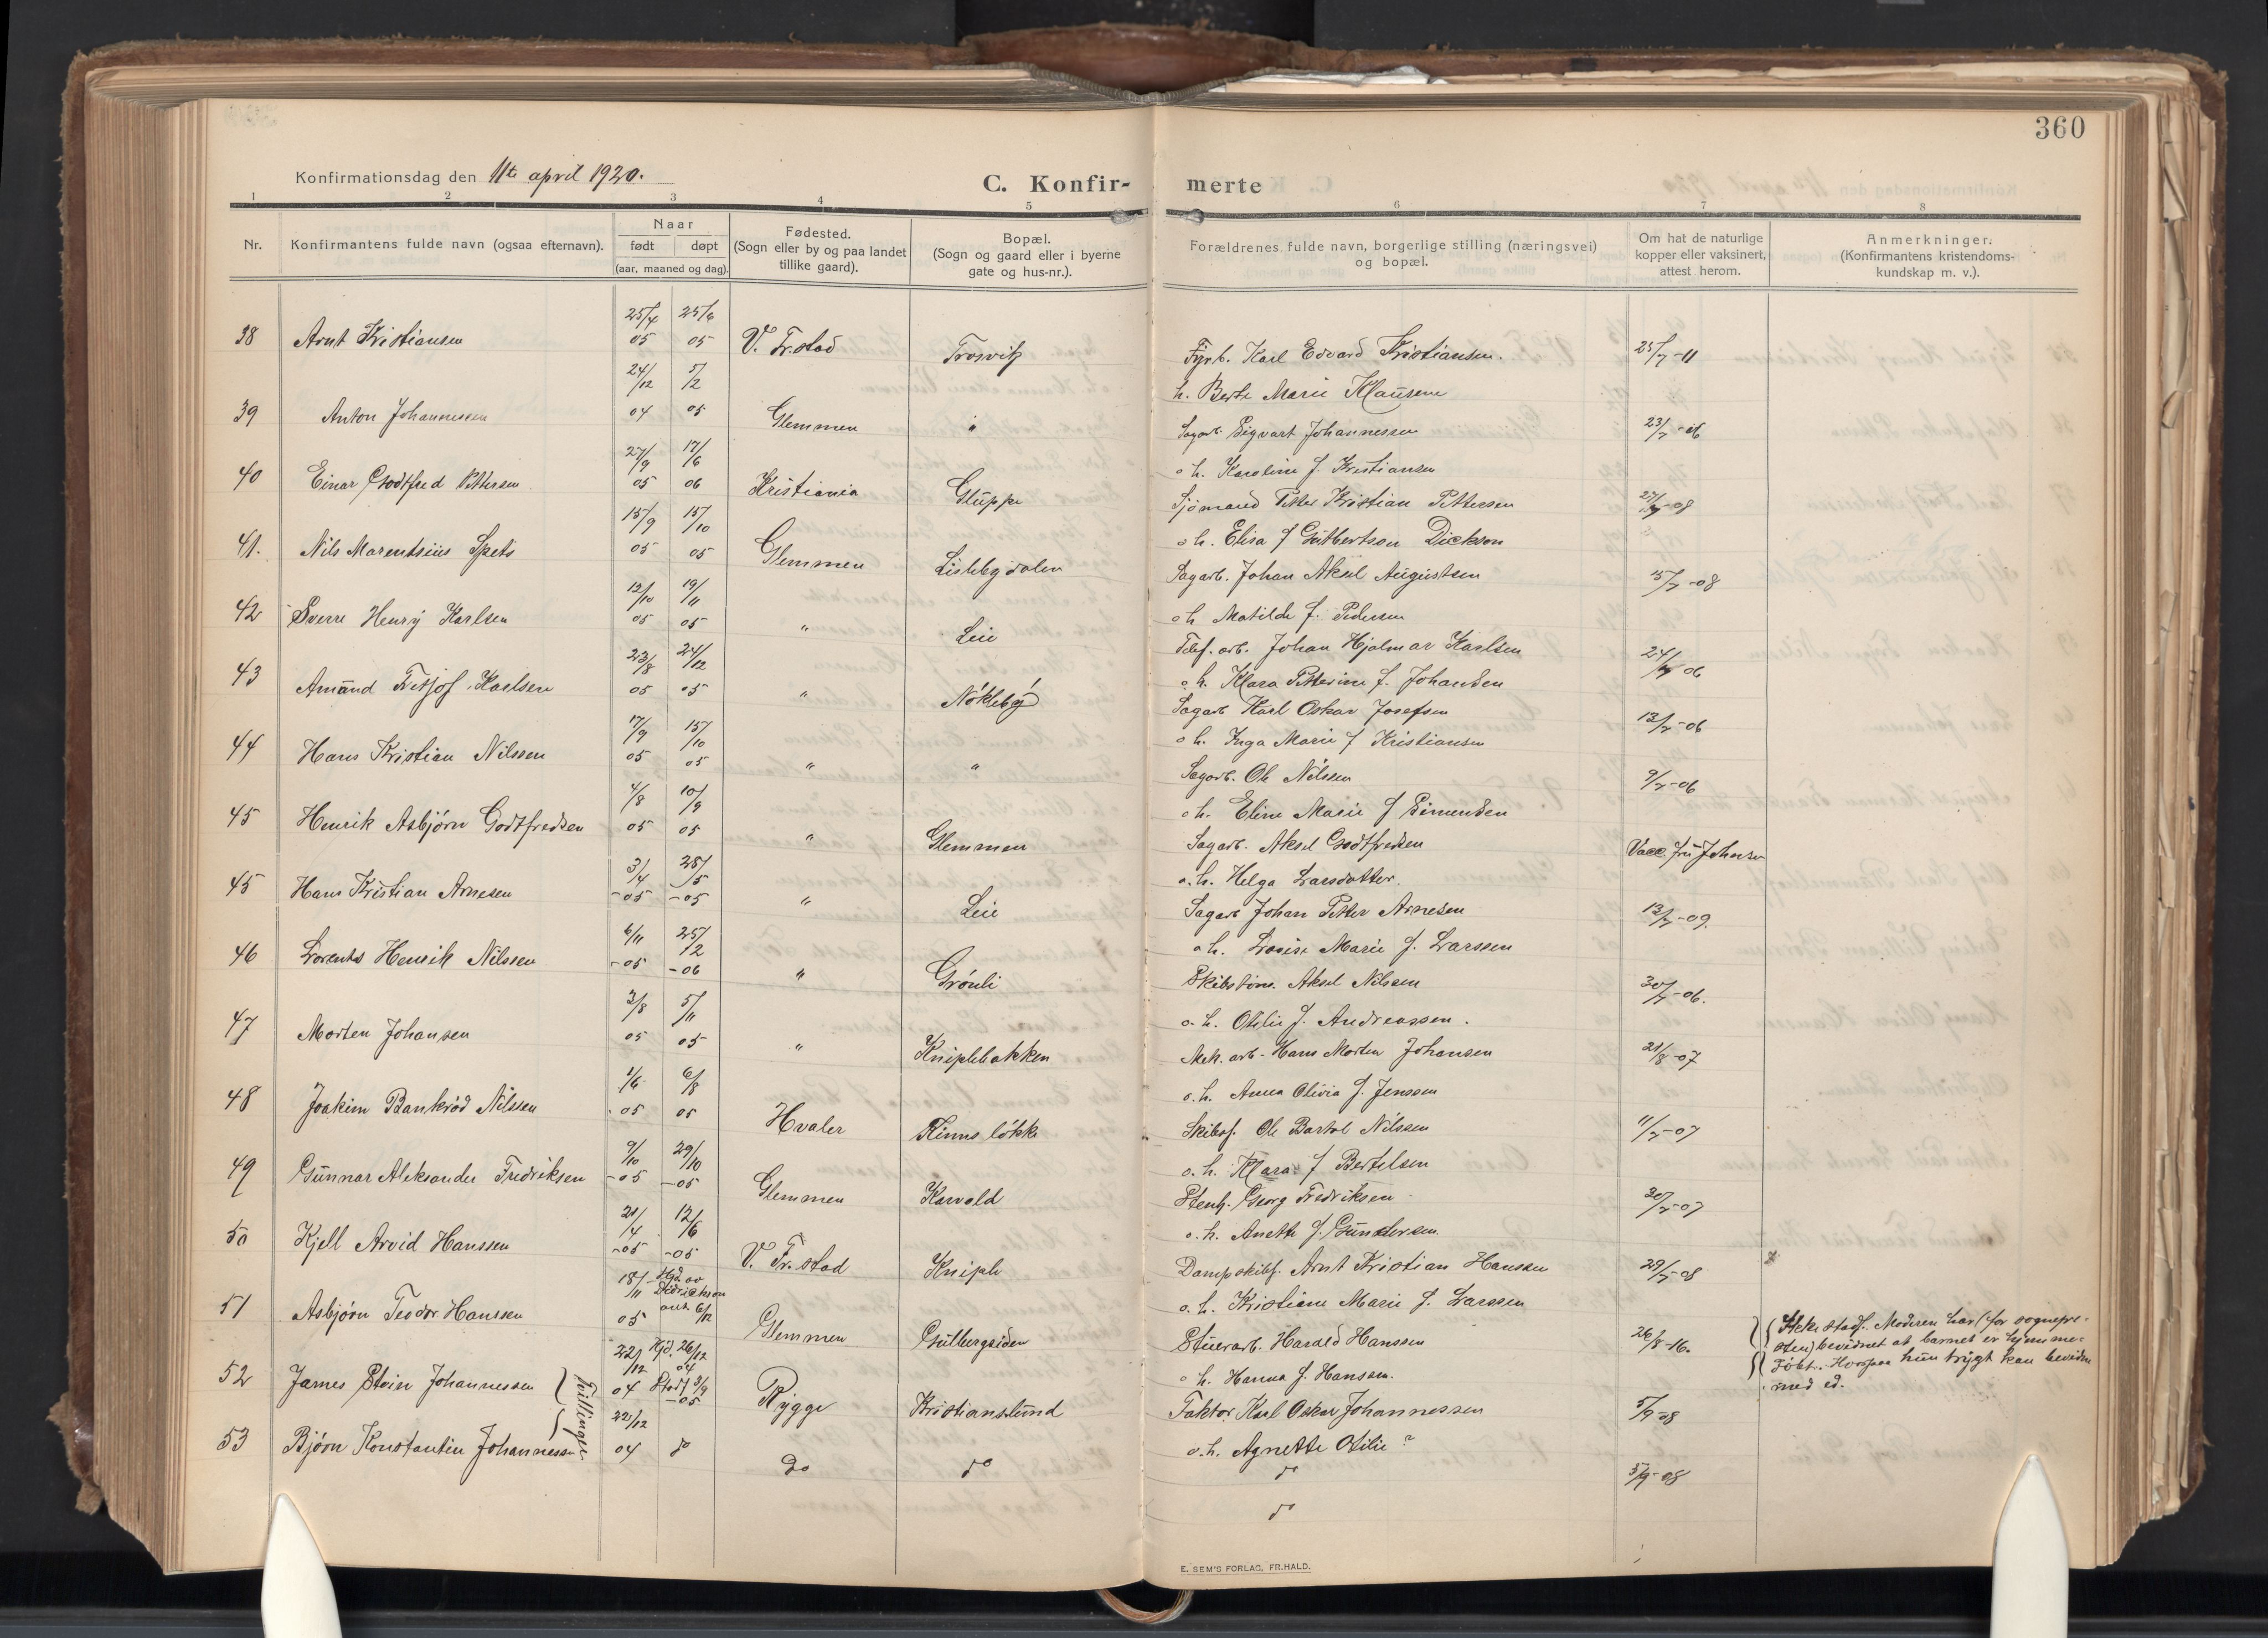 360
Konfirmationsdag den 11te april 1920.
C. Konfir- merte
1 2 3 4 5 6 7 8
Nr.
Konfirmantens fulde navn (ogsaa efternavn).
Naar
født døpt
(aar, maaned og dag).
Fødested.
(Sogn eller by og paa landet
tillike gaard).
Bopæl.
(Sogn og gaard eller i byerne
gate og hus-nr.).
Forældrenes fulde navn, borgerlige stilling (næringsvei)
og bopæl.
Om hat de naturlige
kopper eller vaksinert,
attest herom.
Anmerkninger.
(Konfirmantens kristendoms-
kundskap m. v.).
38 Arnt Kristiansen 25/4 05 25/6 05 V. Fr.stad Trosvik Fyrb. Karl Edvard Kristiansen. 25/7-11
h. Berte Marie Klausene
39 Anton Johannessen 24/12 04 5/2 05 Glemmen " Sagarb. Sigvart Johannessen 23/7-06
o h. Karoline f. Kristiansen
40 Einar Godtfred Pettersen 27/9 05 17/6 06 Kristiania Gluppe Sjømand Petter Kristian Pettersen
o h. Elisa f Gutbertson Dickson
41. Nils Marentsius Spets 15/9 05 15/10 05 Glemmen Lislebydalen Sagarb. Johan Aksel Augustsen 15/7-08
o h Matilde f. Pedersen
42 Sverre Henry Karlsen 12/10 05 19/11 05 " Leie Telef. arb. Johan Hjalmar Karlsen
o. h. Klara Petterine f. Johansen
43 Amand Fritjof Karlsen 23/8 05 24/12 05 " Nøkleby Sagarb Karl Oskar Josefsen 13/7-06
o h. Inga Marie f Kristiansen
44 Hans Kristian Nilssen 17/9 05 15/10 05 " " Sagarb. Ole Nilssen 9/7-06
o h. Eline Marie f Simensen
45 Henrik Asbjørn Godtfredsen 4/8 05 10/9 05 " Glemmen Sagarb. Aksel Godtfredsen Vacc. fru Johansen
o. h. Helga Larsdatter.
45 Hans Kristian Arnesen 3/4 -05 28/5 -05 " Leie Sagarb Johan Petter Arnesen 13/7-09.
o h. Lovise Marie f. Larssen
46 Lorents Henrik Nilssen 6/11 -05 25/2 -06 " Grønli Skibstøm. Aksel Nilssen 30/7-06.
o. h. Otilie f. Andreassen.
47 Morten Johansen 3/8 05 5/11 05 " Kniplebakken Mek. arb. Hans Morten Johansen 21/8-07
o. h. Anna Olivia f. Jenssen
48 Joakim Bankrød Nilssen 1/6 05 6/8 05 Hvaler Kinns løkke Skibsf. Ole Bartol Nilssen 11/7-07
o. h. Klara f Bertelsen
49 Gunnar Aleksander Fredriksen 9/10 -05 29/10 -05 Glemmen Karvold Stenh. Georg Fredriksen
o. h. Anette f. Gundersen
50 Kjell Arvid Hanssen 21/4 -05 12/6 -05 V. Fr.stad Kniple Dampskibsf. Arnt Kristian Hanssen 29/7-08
o. h. Kristiane Marie f. Larssen
51 Asbjørn Teodor Hanssen 18/11 05 Hjd. av Didrickson 6/12 Glemmen Gulbergsiden Stuerarb. Harald Hanssen 26/8-16.
o h. Hanna f. Hanssen.
Ikke stadf. Moderen har (for sognepre-
sten) bevidnet at barnet er hjemme-
døbt. Hvorpaa hun trygt kan bevidne
med ed.
52 James Stein Johannessen 22/12 04 Hjd. 26/12 04 Stadf 3/9 -05 Rygge Kristianslund Faktor Karl Oskar Johannessen 5/9-08
o. h. Agnette Otilie ?
Tvillinger
53 Bjørn Konstantin Johannessen 22/12 04 do Do do do 5/9-08
do
E. SEM'S FORLAG, FR.HALD.